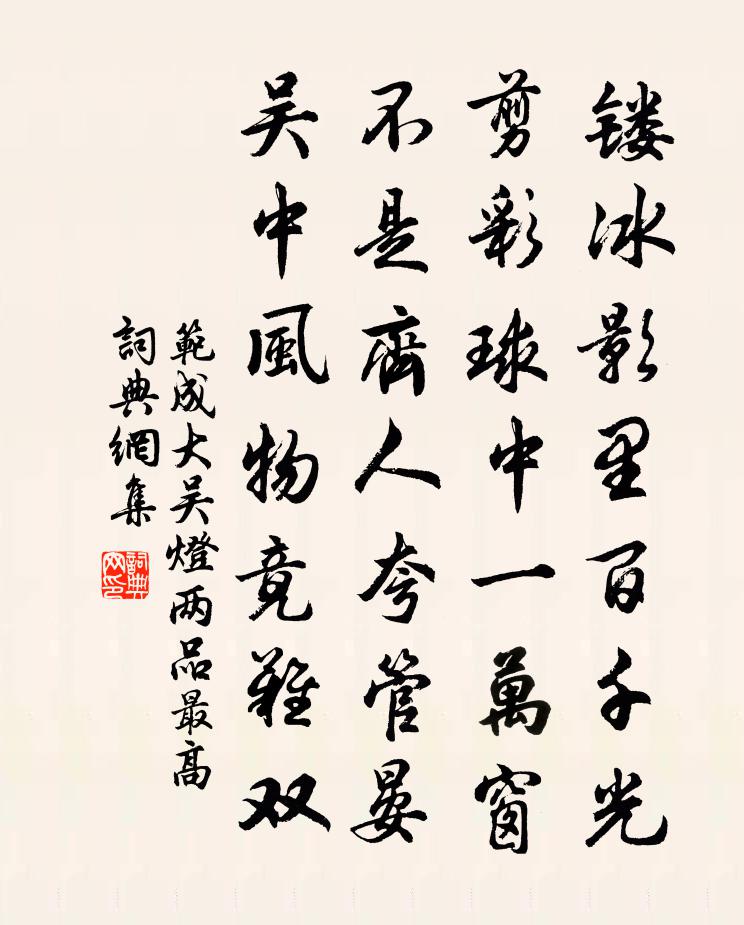 镂冰影里百千光
剪彩球中一萬窗
不是齊人夸管晏
吴中風物竟難双
範成大吴燈两品最高
詞典網集
詞典
网印